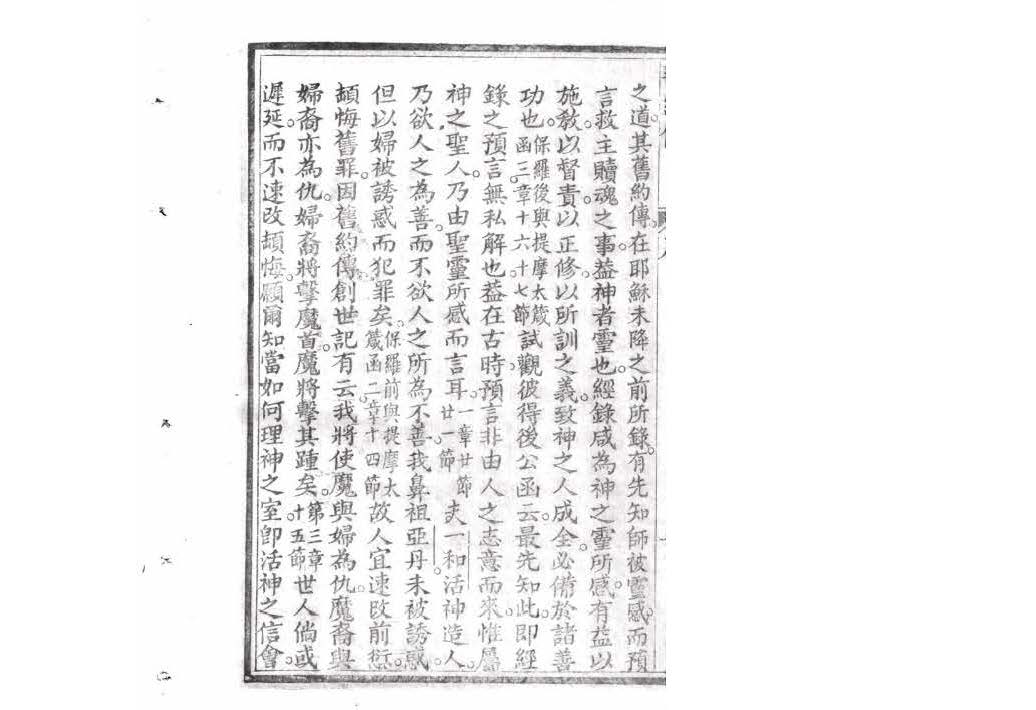 之道其舊約傳在耶穌未降之前所錄有先知師被靈感而預
言救主贖魂之事葢神者靈也經錄咸為神之靈所感有益以
施敎以督責以正修以所訓之義致神之人成全必備於諸善
功也保羅後與提摩太箴函三章十六十七節試觀彼得後公函云最先知此即經
錄之預言無私解也葢在古時預言非由人之志意而來惟屬
神之聖人乃由聖靈所感而言耳一章廿節廿一節夫一和活神造人
乃欲人之為善而不欲人之所為不善我鼻祖亞丹未被誘惑
但以婦被誘惑而犯罪矣保羅前與提摩太箴函二章十四節故人宜速改前愆
頡悔舊罪因舊約傳創世記有云我將使魔與婦為仇魔裔與
婦裔亦為仇婦裔將擊魔首魔將擊其踵矣第三章十五節世人倘或
遲延而不速改頡悔願爾知當如何理神之室卽活神之信會